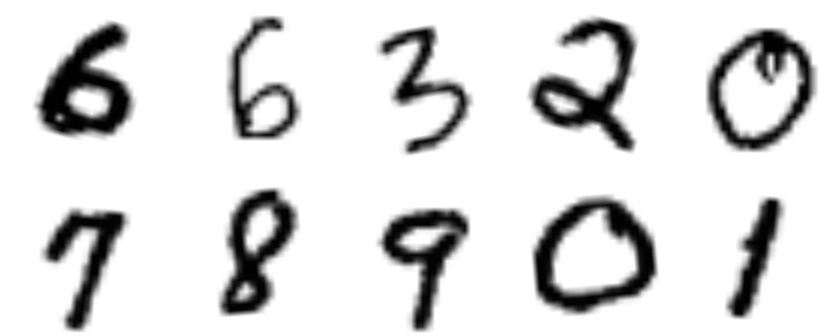 6 6 3 2 0
7 8 9 0 1